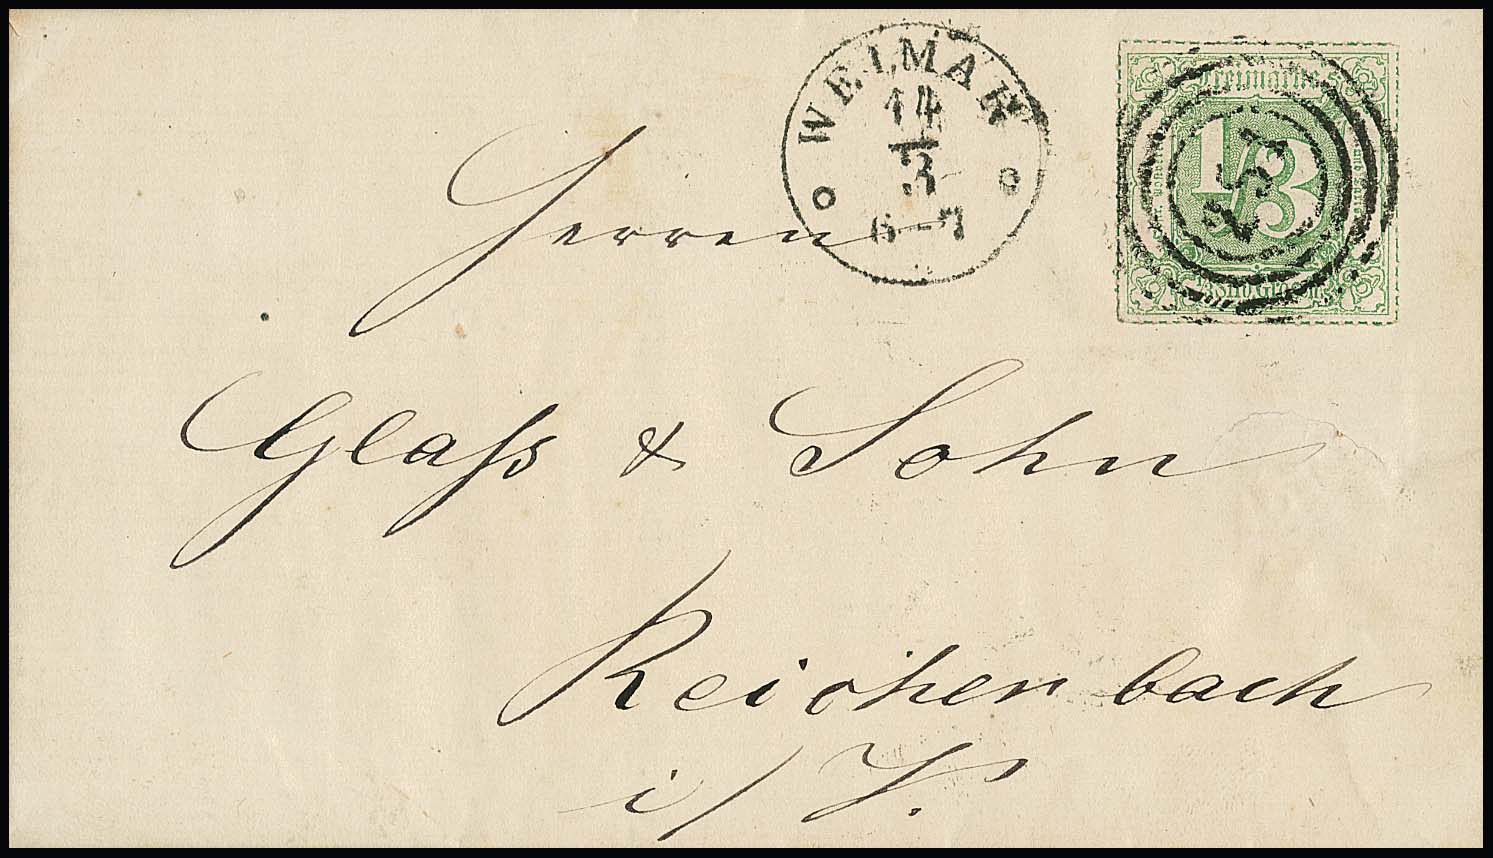 WEIMAR
14
3
6-7
Freimarke
1/3
253
Herren
Glaſs & Sohn
Reichenbach
i/V.